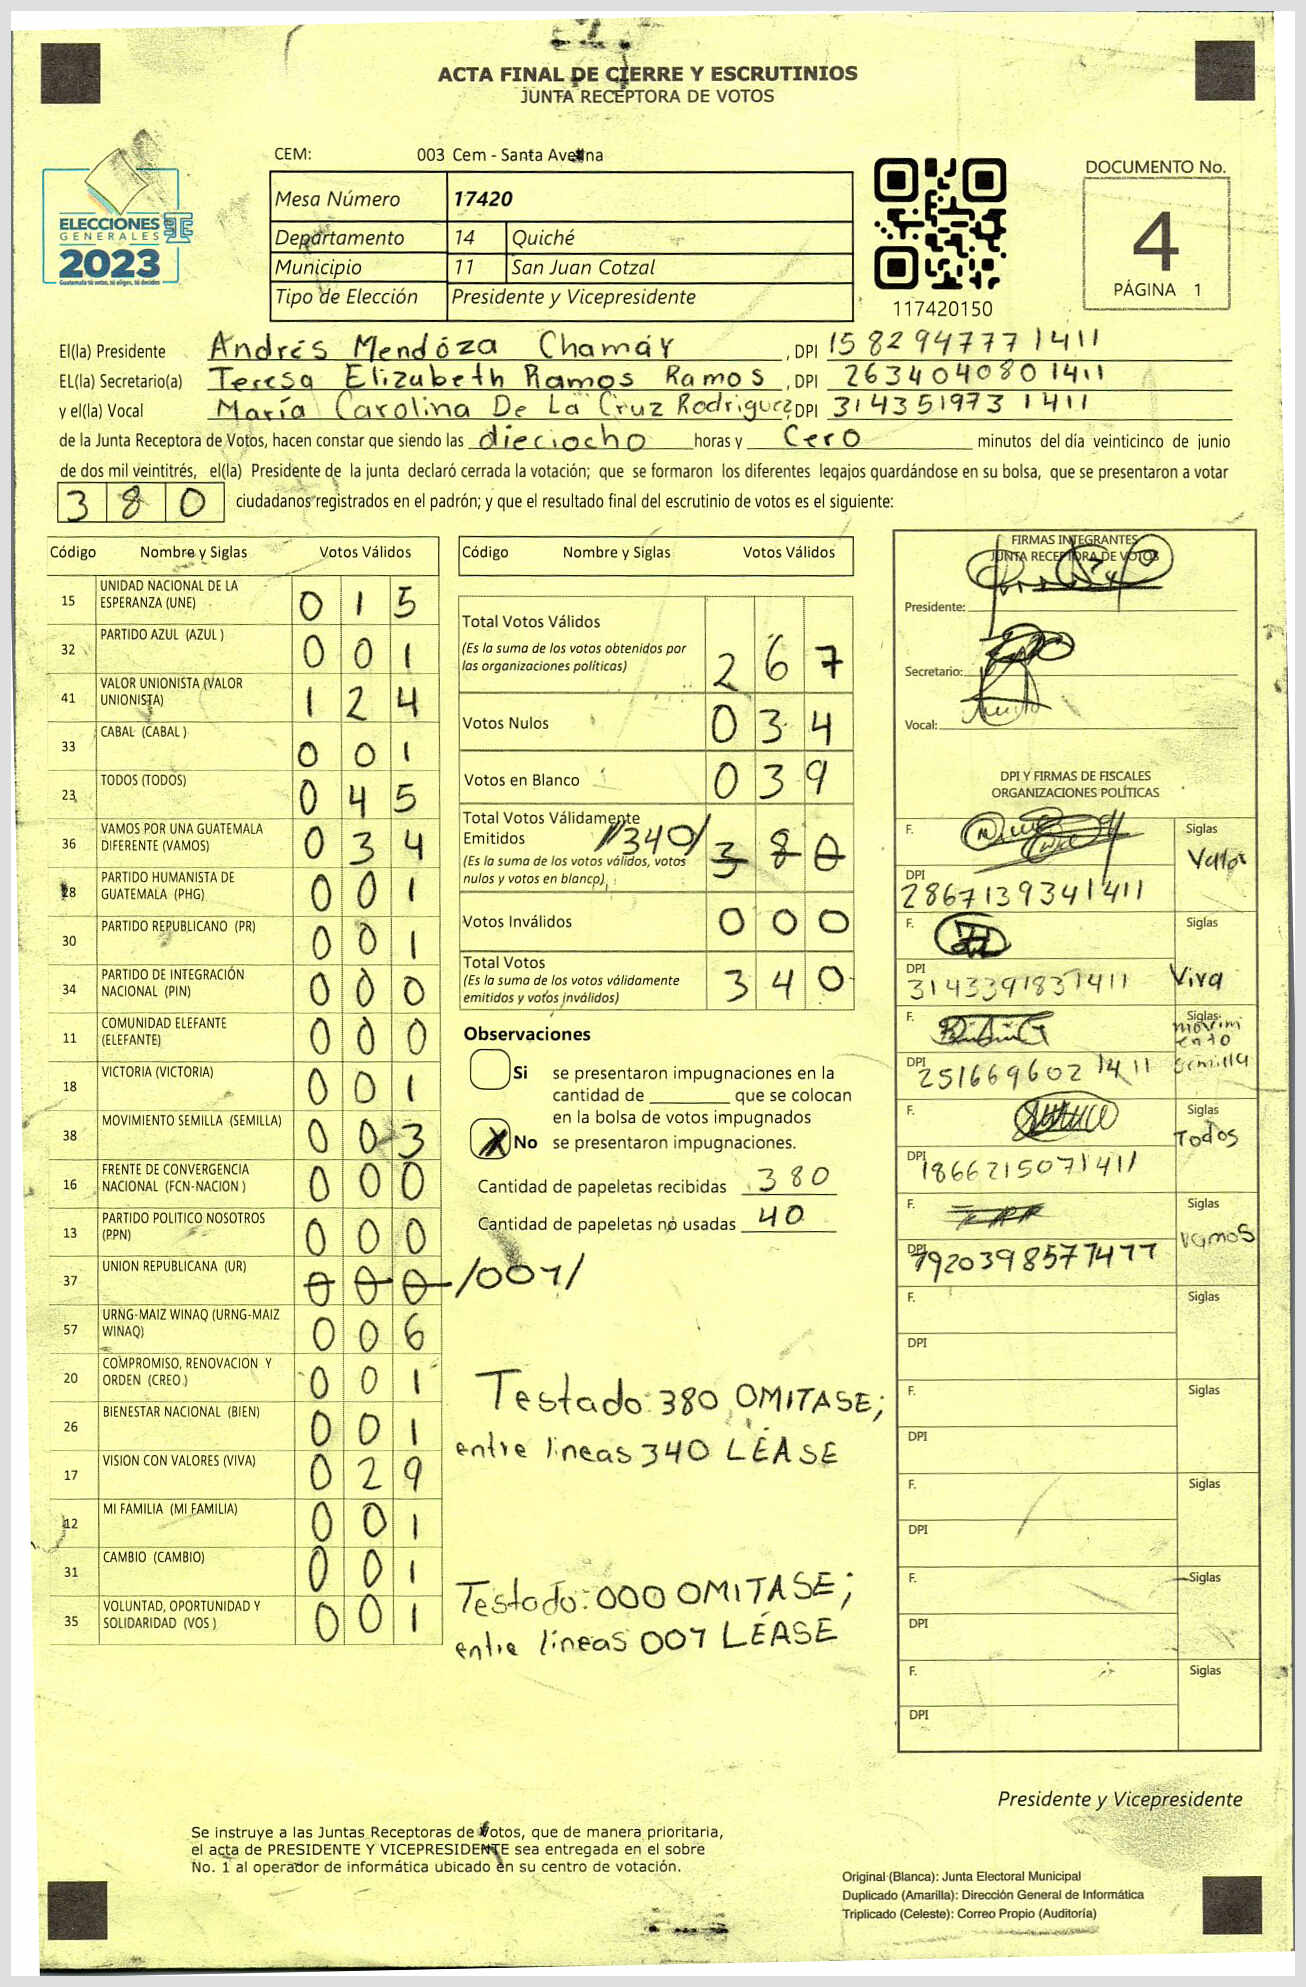 ACTA FINAL DE CIERRE Y ESCRUTINIOS
JUNTA RECEPTORA DE VOTOS
ELECCIONES
GENERALES
2023
Guatemala tú votas, tú eliges, tú decides
CEM: 003 Cem - Santa Avelina
Mesa Número 17420
Departamento 14 Quiché
Municipio 11 San Juan Cotzal
Tipo de Elección Presidente y Vicepresidente
117420150
DOCUMENTO No.
4
PÁGINA 1
El(la) Presidente Andrés Mendóza Chamáy , DPI 1582947771411
EL(la) Secretario(a) Teresa Elizabeth Ramos Ramos , DPI 2634040801411
y el(la) Vocal María Carolina De La Cruz Rodriguez, DPI 3143519731411
de la Junta Receptora de Votos, hacen constar que siendo las dieciocho horas y Cero minutos del día veinticinco de junio
de dos mil veintitrés, el(la) Presidente de la junta declaró cerrada la votación; que se formaron los diferentes legajos guardándose en su bolsa, que se presentaron a votar
380 ciudadanos registrados en el padrón; y que el resultado final del escrutinio de votos es el siguiente:
Código Nombre y Siglas Votos Válidos
15 UNIDAD NACIONAL DE LA ESPERANZA (UNE) 015
32 PARTIDO AZUL (AZUL ) 001
41 VALOR UNIONISTA (VALOR UNIONISTA) 124
33 CABAL (CABAL ) 001
23 TODOS (TODOS) 045
36 VAMOS POR UNA GUATEMALA DIFERENTE (VAMOS) 034
28 PARTIDO HUMANISTA DE GUATEMALA (PHG) 001
30 PARTIDO REPUBLICANO (PR) 001
34 PARTIDO DE INTEGRACIÓN NACIONAL (PIN) 000
11 COMUNIDAD ELEFANTE (ELEFANTE) 000
18 VICTORIA (VICTORIA) 001
38 MOVIMIENTO SEMILLA (SEMILLA) 003
16 FRENTE DE CONVERGENCIA NACIONAL (FCN-NACION ) 000
13 PARTIDO POLITICO NOSOTROS (PPN) 000
37 UNION REPUBLICANA (UR) 000 /001/
57 URNG-MAIZ WINAQ (URNG-MAIZ WINAQ) 006
20 COMPROMISO, RENOVACION Y ORDEN (CREO ) 001
26 BIENESTAR NACIONAL (BIEN) 001
17 VISION CON VALORES (VIVA) 029
12 MI FAMILIA (MI FAMILIA) 001
31 CAMBIO (CAMBIO) 001
35 VOLUNTAD, OPORTUNIDAD Y SOLIDARIDAD (VOS ) 001
Código Nombre y Siglas Votos Válidos
Total Votos Válidos 267
(Es la suma de los votos obtenidos por
las organizaciones políticas)
Votos Nulos 034
Votos en Blanco 039
Total Votos Válidamente
Emitidos //340/ 380
(Es la suma de los votos válidos, votos
nulos y votos en blanco)
Votos Inválidos 000
Total Votos 340
(Es la suma de los votos válidamente
emitidos y votos inválidos)
Observaciones
Si se presentaron impugnaciones en la
cantidad de ________ que se colocan
en la bolsa de votos impugnados
X No se presentaron impugnaciones.
Cantidad de papeletas recibidas 380
Cantidad de papeletas no usadas 40
Testado: 380 OMITASE;
entre líneas 340 LÉASE
Testado: 000 OMITASE;
entre líneas 001 LÉASE
FIRMAS INTEGRANTES
JUNTA RECEPTORA DE VOTOS
Presidente:
Secretario:
Vocal:
DPI Y FIRMAS DE FISCALES
ORGANIZACIONES POLÍTICAS
F. Siglas Valor
DPI 2867139341411
F. Siglas Viva
DPI 3143391831411
F. Siglas: movimi
ento
semilla
DPI 2516696021411
F. Siglas Todos
DPI 1866215071411
F. Siglas vamos
DPI 7920398577477
F. Siglas
DPI
F. Siglas
DPI
F. Siglas
DPI
F. Siglas
DPI
F. Siglas
DPI
Presidente y Vicepresidente
Se instruye a las Juntas Receptoras de Votos, que de manera prioritaria,
el acta de PRESIDENTE Y VICEPRESIDENTE sea entregada en el sobre
No. 1 al operador de informática ubicado en su centro de votación.
Original (Blanca): Junta Electoral Municipal
Duplicado (Amarilla): Dirección General de Informática
Triplicado (Celeste): Correo Propio (Auditoría)